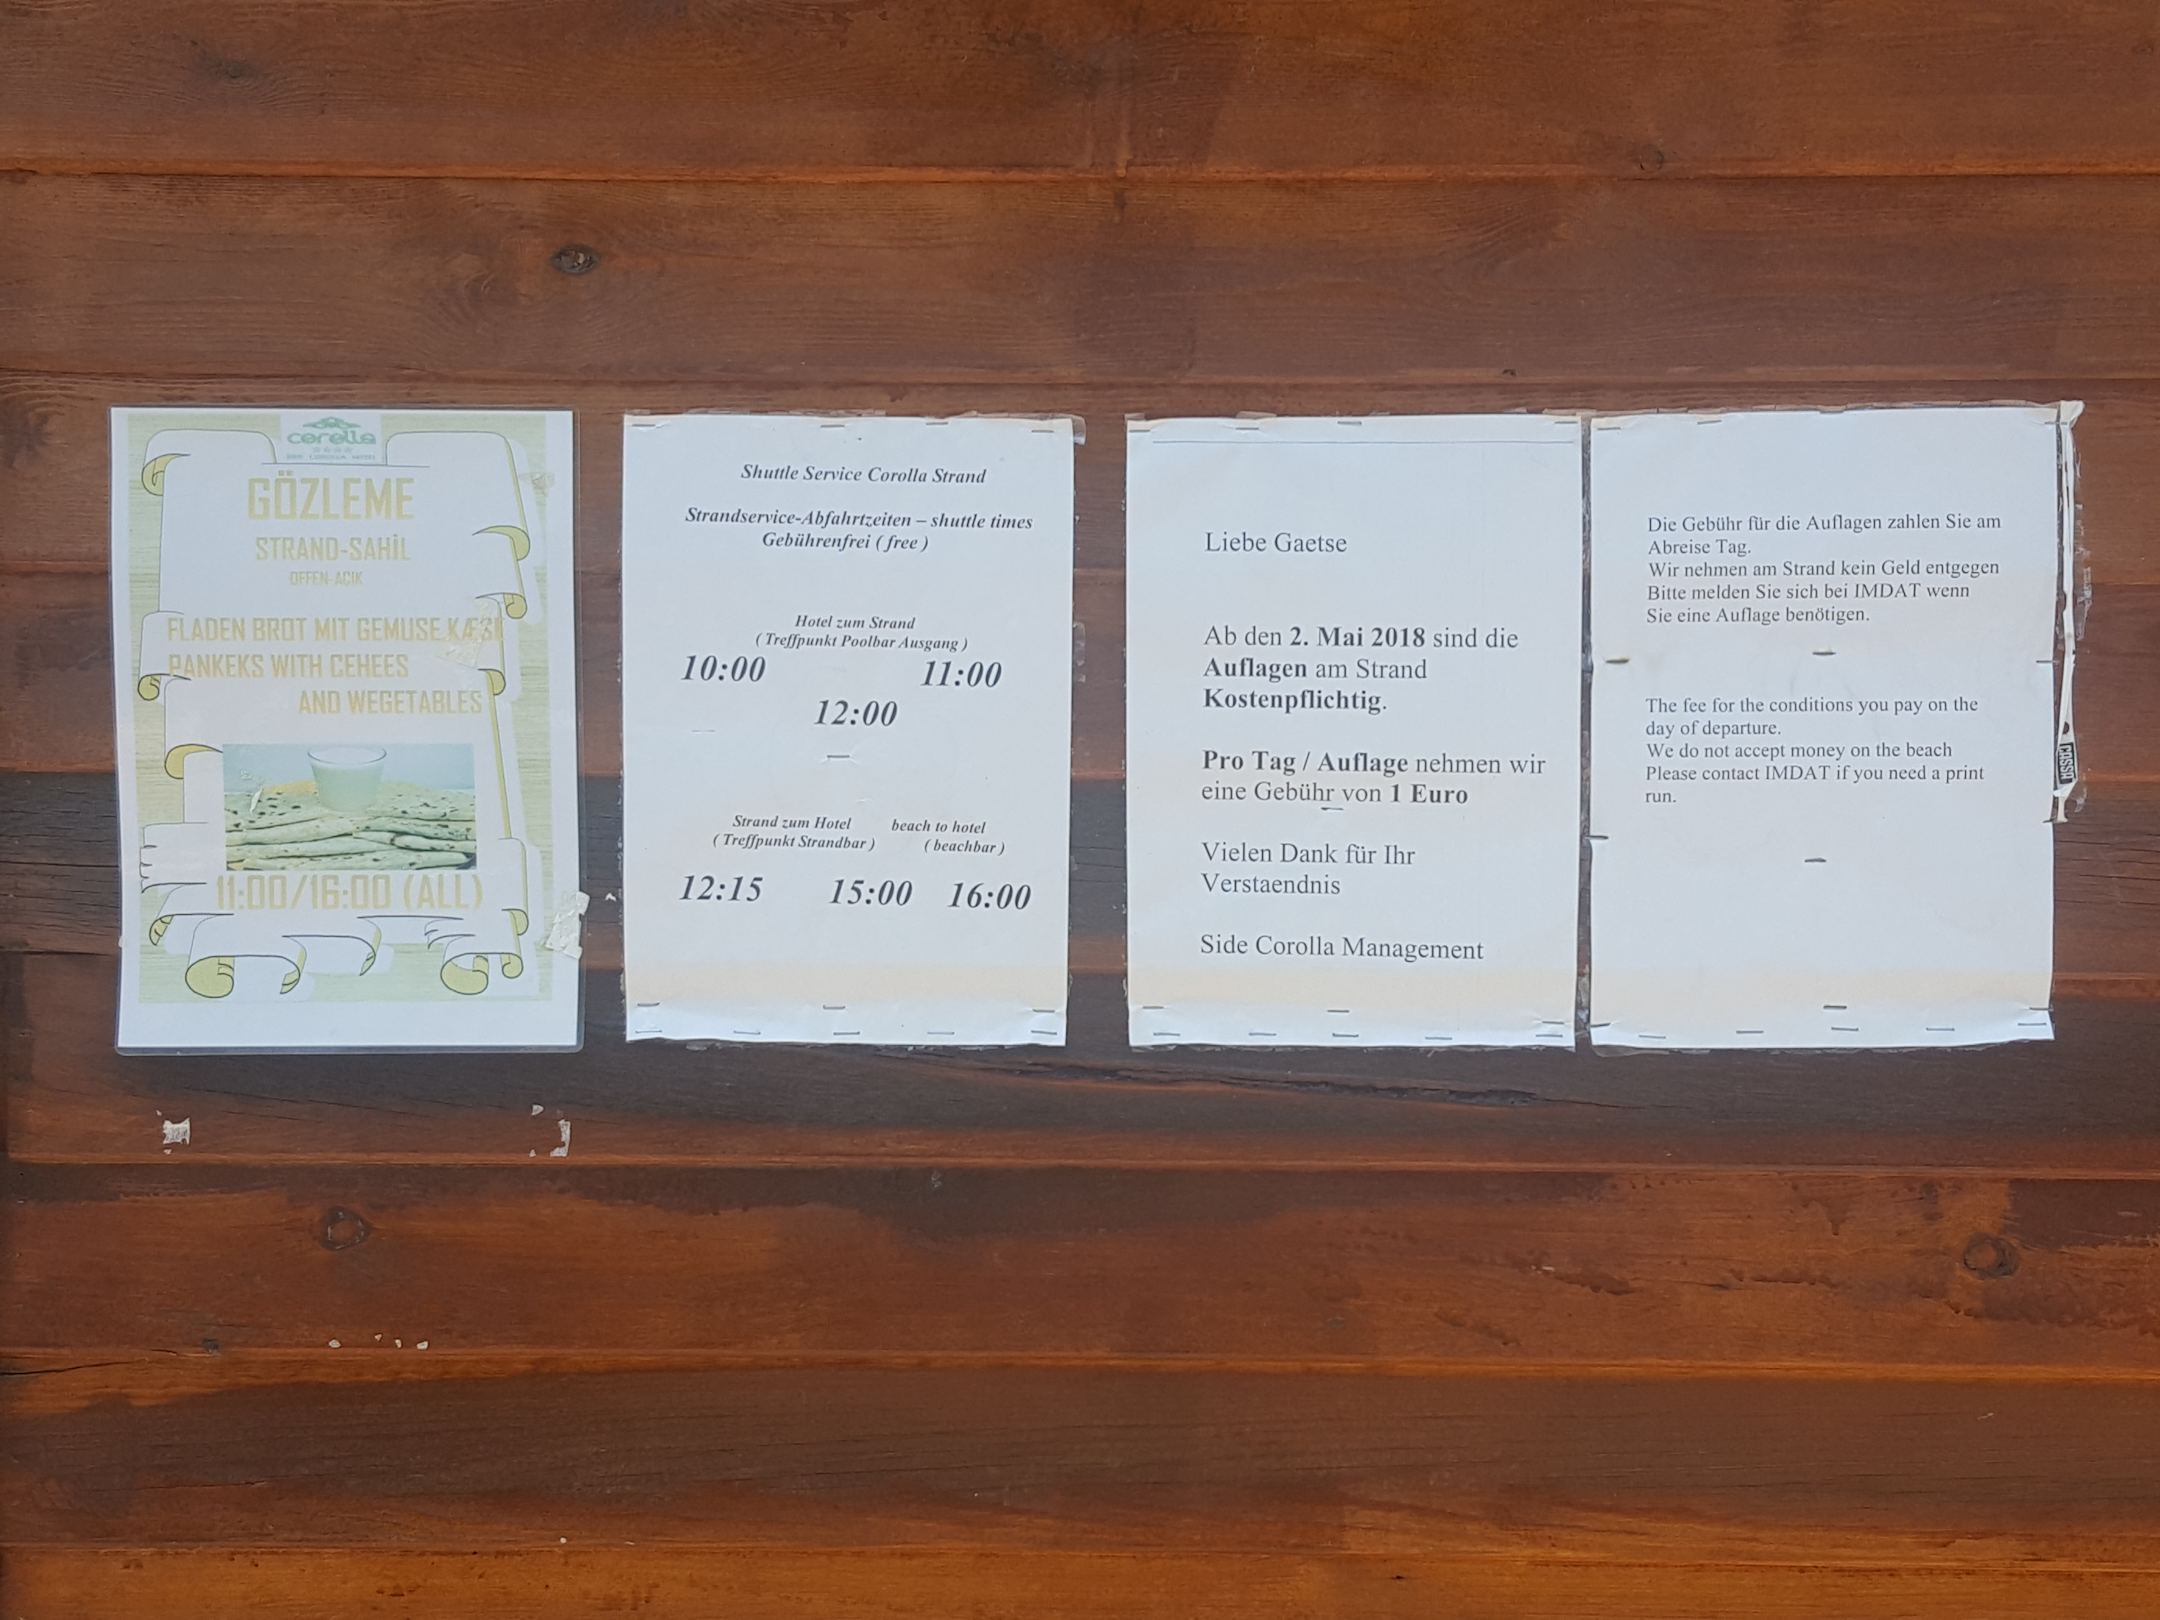 corolla
SIDE COROLLA HOTEL
GÖZLEME
STRAND-SAHİL
OFFEN-ACIK
FLADEN BROT MIT GEMUSE KÆSE
PANKEKS WITH CEHEES
AND WEGETABLES
11:00/16:00 (ALL)
Shuttle Service Corolla Strand
Strandservice-Abfahrtzeiten – shuttle times
Gebührenfrei ( free )
Hotel zum Strand
( Treffpunkt Poolbar Ausgang )
10:00 11:00
12:00
Strand zum Hotel beach to hotel
( Treffpunkt Strandbar ) ( beachbar )
12:15 15:00 16:00
Liebe Gaetse
Ab den 2. Mai 2018 sind die
Auflagen am Strand
Kostenpflichtig.
Pro Tag / Auflage nehmen wir
eine Gebühr von 1 Euro
Vielen Dank für Ihr
Verstaendnis
Side Corolla Management
Die Gebühr für die Auflagen zahlen Sie am
Abreise Tag.
Wir nehmen am Strand kein Geld entgegen
Bitte melden Sie sich bei IMDAT wenn
Sie eine Auflage benötigen.
The fee for the conditions you pay on the
day of departure.
We do not accept money on the beach
Please contact IMDAT if you need a print
run.